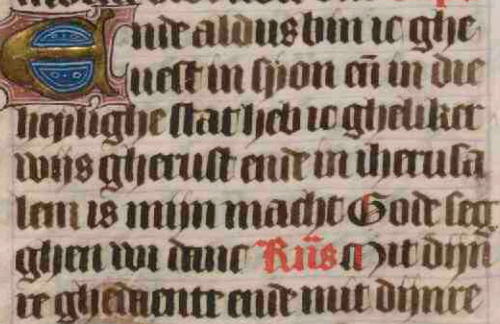 Ende aldus bin ic ghe
uest in syon en̄ in die
heylighe stat heb ic gheliker
wijs gherust ende in iherusa
lem is mijn macht Gode seg
ghen wi danc Rūs Mit dijn̄
re ghedaente ende mit dijnre